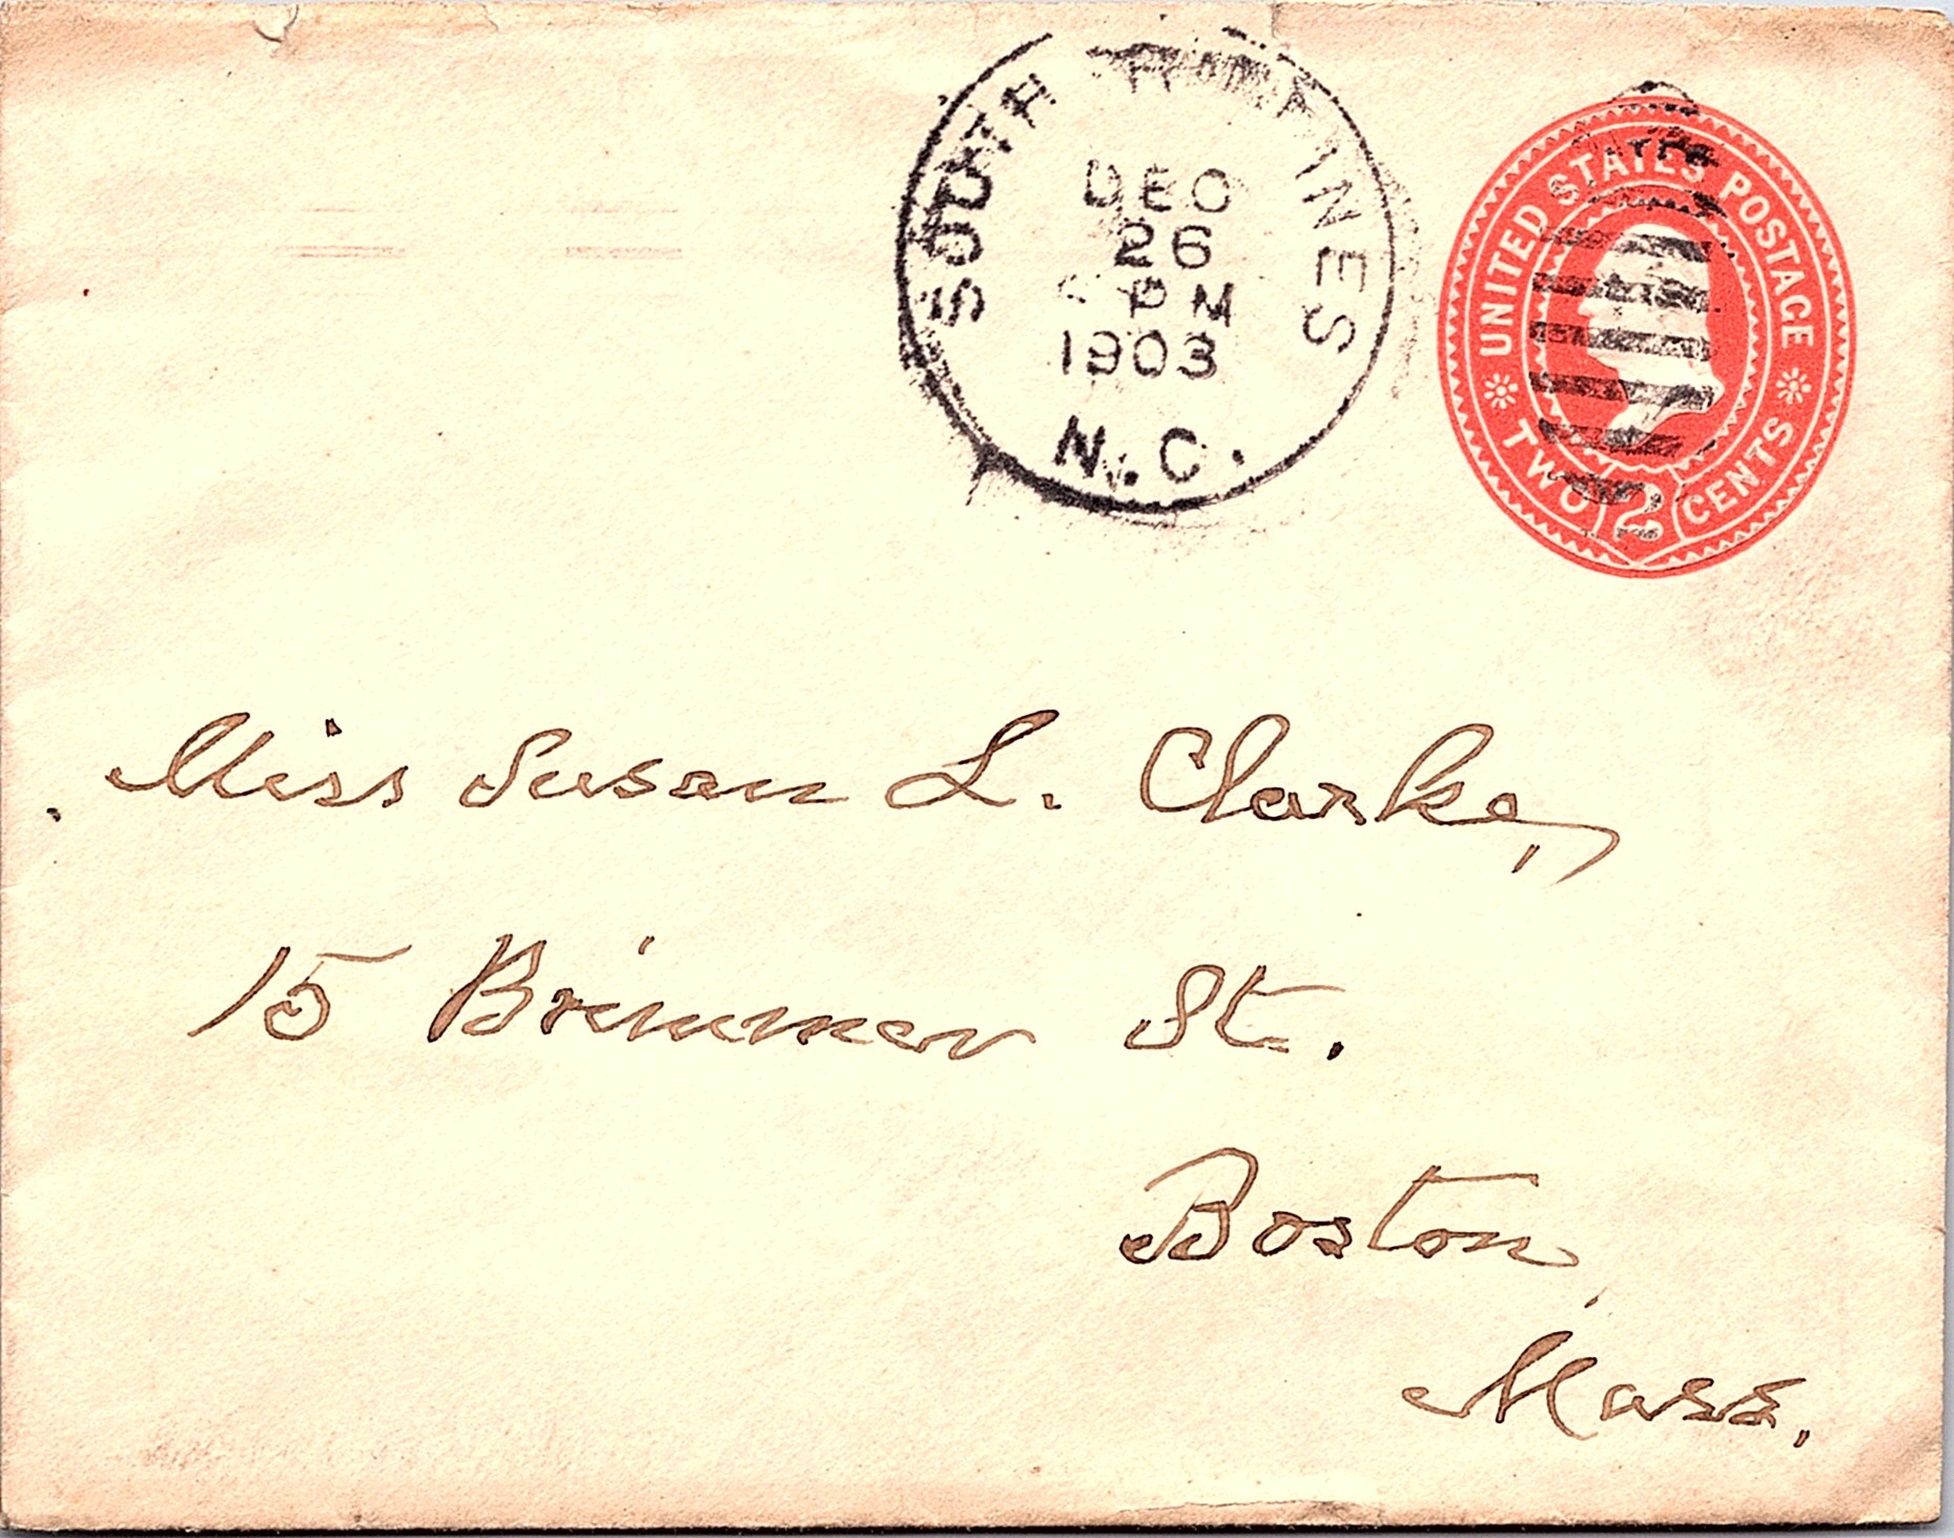 SOUTH PINES
DEC
26
PM
1903
N.C.
UNITED STATES POSTAGE
TWO 2 CENTS
Miss Susan L. Clarke,
15 Brimmer St.
Boston,
Mass.